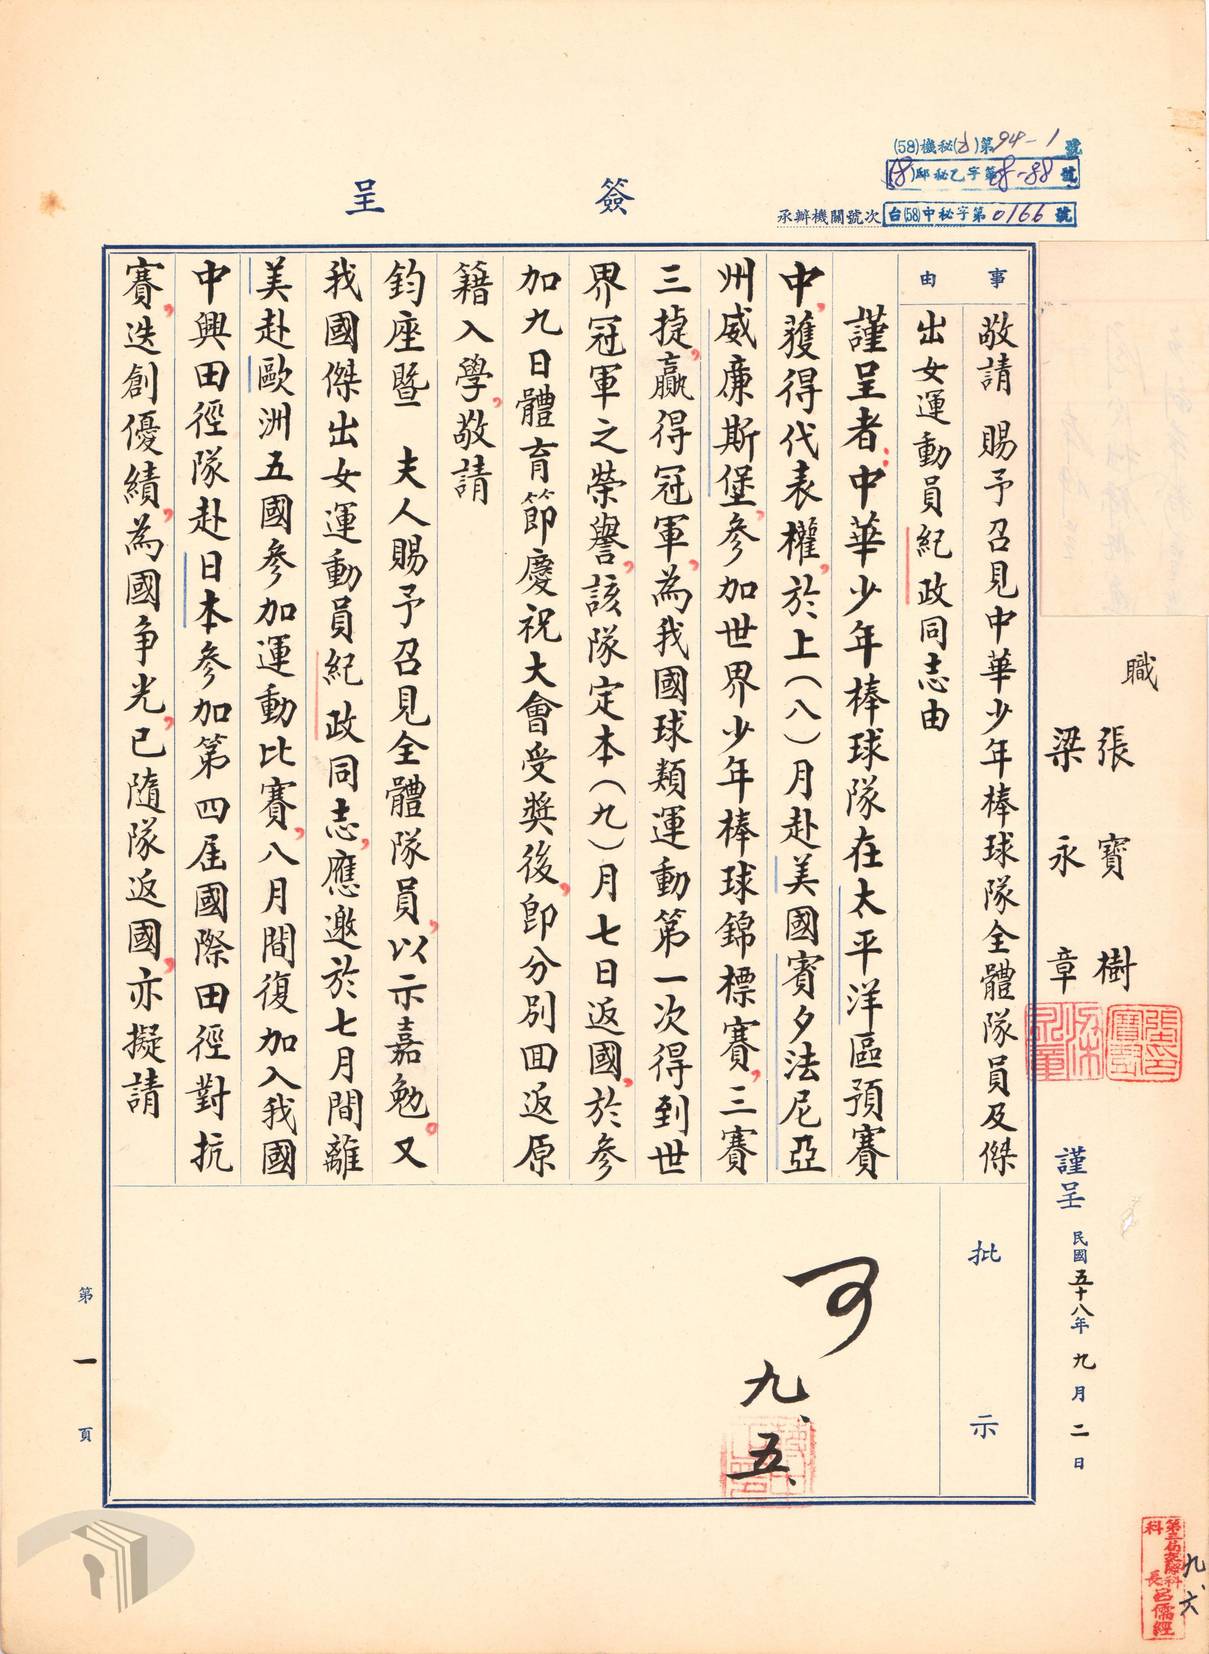 (58)機秘(乙)第94-1號
(58)邸秘乙字第08-88號
承辦機關號次 台(58)中秘字第0166號
簽呈
事由
敬請 賜予召見中華少年棒球隊全體隊員及傑
出女運動員紀政同志由
謹呈者：中華少年棒球隊在太平洋區預賽
中，獲得代表權，於上（八）月赴美國賓夕法尼亞
州威廉斯堡，參加世界少年棒球錦標賽，三賽
三捷，贏得冠軍，為我國球類運動第一次得到世
界冠軍之榮譽，該隊定本（九）月七日返國，於參
加九日體育節慶祝大會受獎後，即分別回返原
籍入學，敬請
鈞座暨 夫人賜予召見全體隊員，以示嘉勉。又
我國傑出女運動員紀政同志，應邀於七月間離
美赴歐洲五國參加運動比賽，八月間復加入我國
中興田徑隊赴日本參加第四屆國際田徑對抗
賽，迭創優績，為國爭光，已隨隊返國，亦擬請
批示
可
九、五、
職
張寶樹
梁永章
謹呈 民國五十八年九月二日
第一頁
九、六